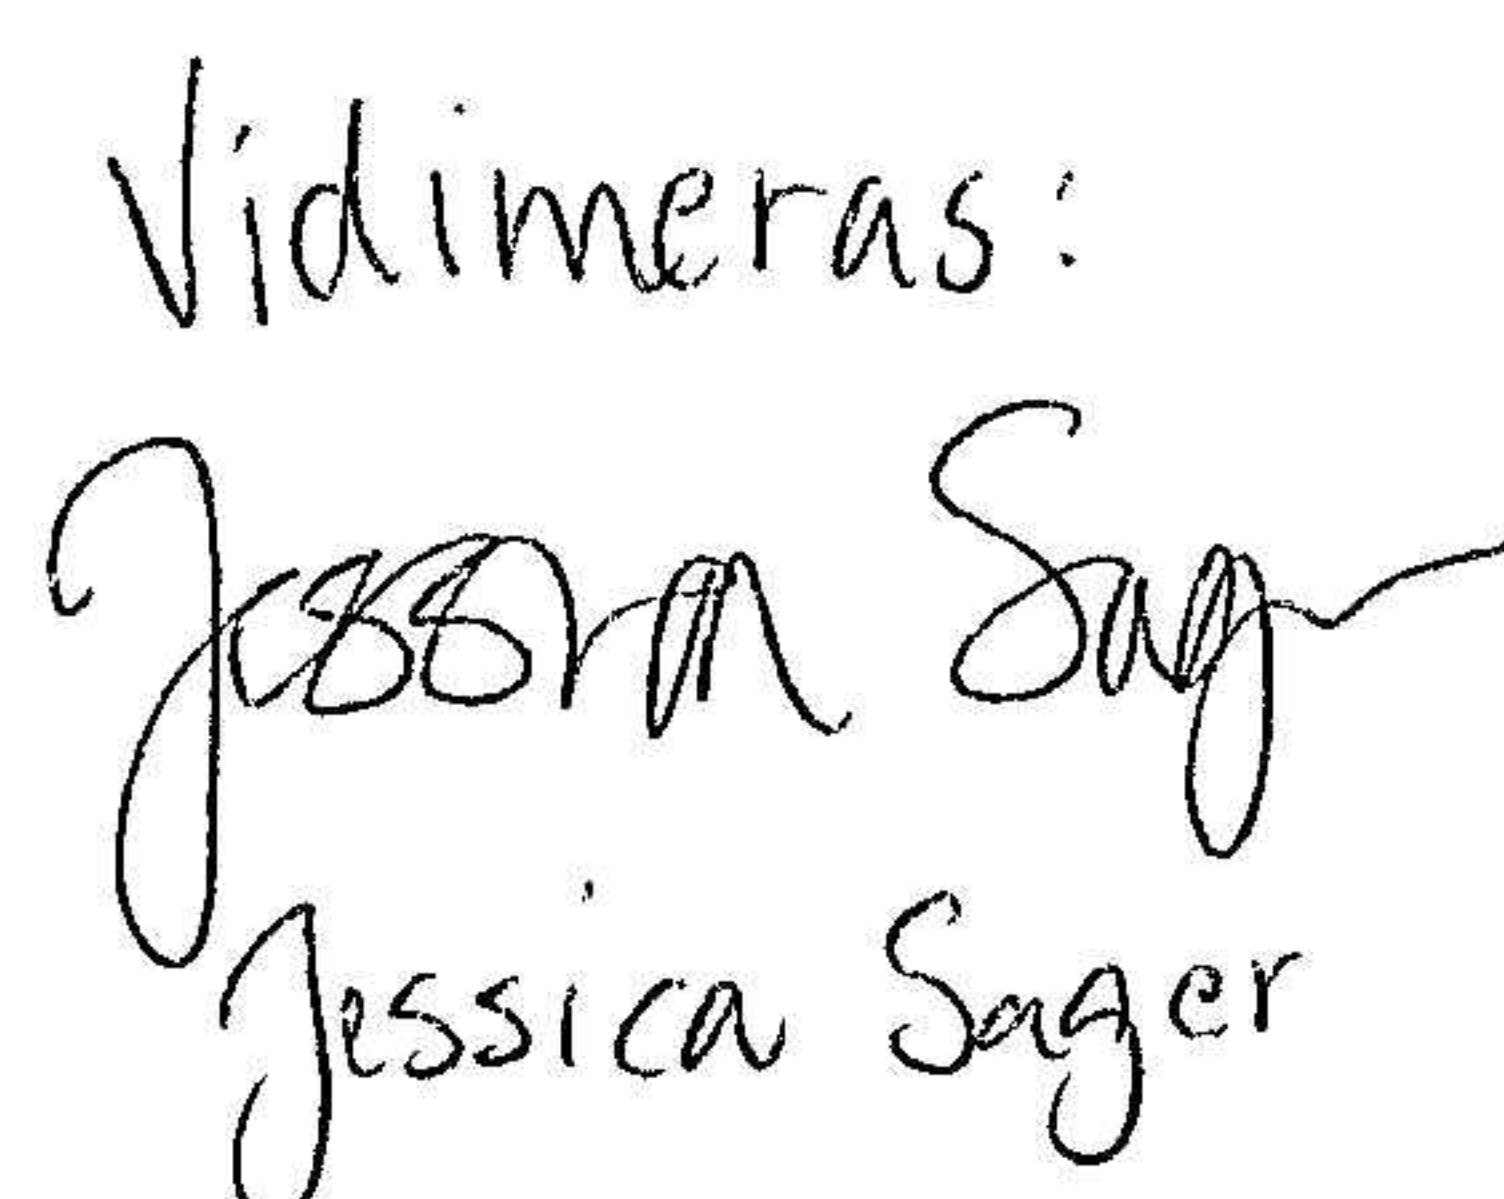 Vidimeras:
Jessica Sager
Jessica Sager